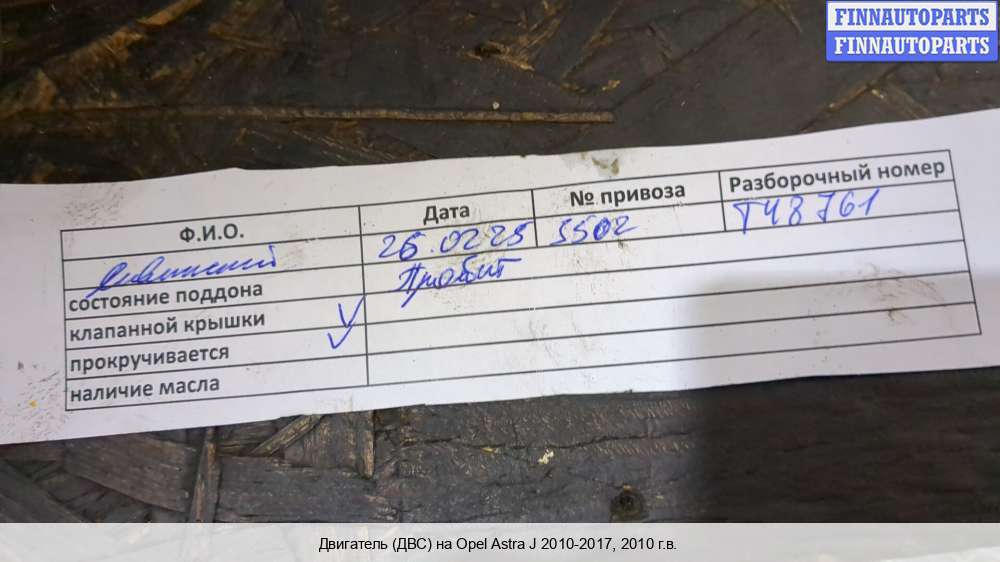 FINNAUTOPARTS
FINNAUTOPARTS
Ф.И.О. Дата № привоза Разборочный номер
26.02 25 5502 Т48761
состояние поддона Пробит
клапанной крышки ✓
прокручивается ✓
наличие масла
Двигатель (ДВС) на Opel Astra J 2010-2017, 2010 г.в.